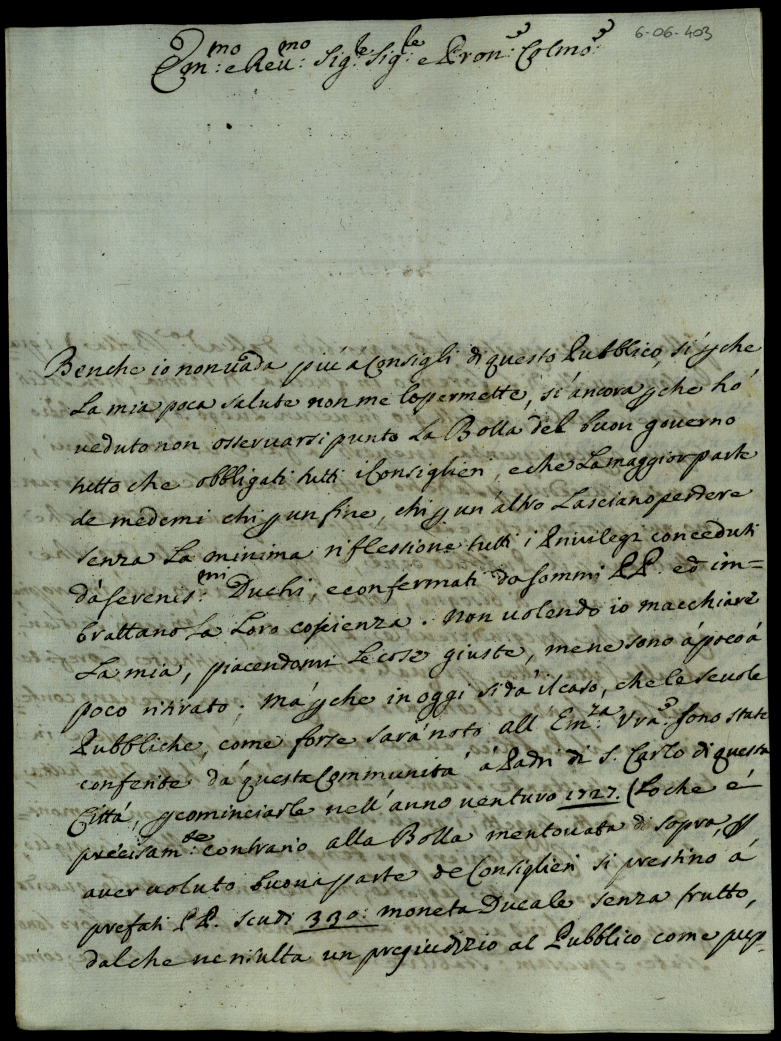 6-06-403
Em:mo e Reu:mo Sig:le Sig:le e Pron:e Colmo:e
Benche io non uada più a Consigli di questo Pubblico, sì pche
La mia poca salute non me lo permette, sì ancora pche hò
veduto non osseruarsi punto La Bolla del buon gouerno
tutto che obbligati tutti i Consiglieri, e che La maggior parte
de medemi chi p un fine, chi p un'altro Lasciano perdere
senza La minima riflessione tutti i Priuilegi conceduti
dà Serenis:mi Duchi, e confermati da Sommi PP. ed im=
brattano La Loro coscienza. Non uolendo io macchiare
La mia, piacendomi Le cose giuste, mene sono à poco à
poco ritirato; mà pche in oggi si dà il caso, che le scuole
Pubbliche, come forse sarà noto all' Em:za Vra:, sono state
conferite dà questa Communità à Padri di S. Carlo di questa
Città, p cominciarle nell'anno uenturo 1727. (Lo che é
precisam:te contrario alla Bolla mentouata di sopra, p
auer uoluto buona parte de Consiglieri si prestino à
prefati PP. scudi 330: moneta Ducale senza frutto,
dal che ne risulta un pregiudizio al Pubblico come pup-